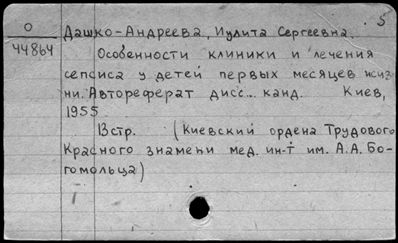 5
О
44864
Дашко-Андреева, Иулита Сергеевна.
Особенности клиники и лечения
сепсиса у детей первых месяцев жиз
ни. Автореферат дисс... канд. Киев,
1955
13 стр. (Киевский ордена Трудового
Красного знамени мед. ин-т им. А.А. Бо-
гомольца)